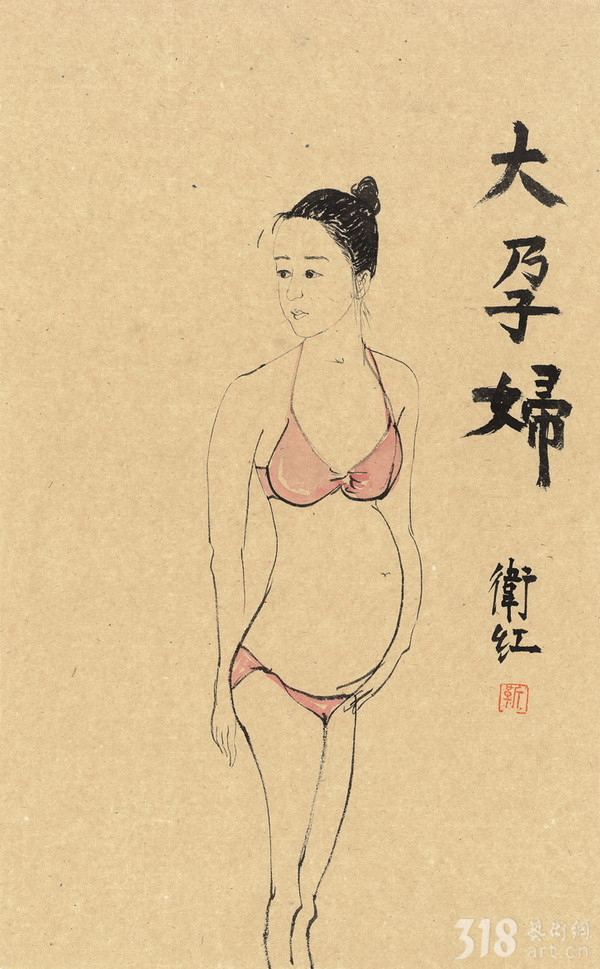 大孕婦
衛红
靳
318 藝術網
art.cn